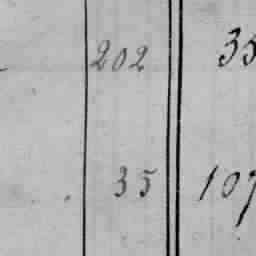 202 35
35 107